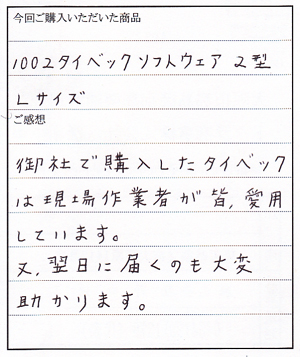 今回ご購入いただいた商品
1002タイベックソフトウェア 2型
Lサイズ
ご感想
御社で購入したタイベック
は現場作業者が皆,愛用
しています。
又,翌日に届くのも大変
助かります。